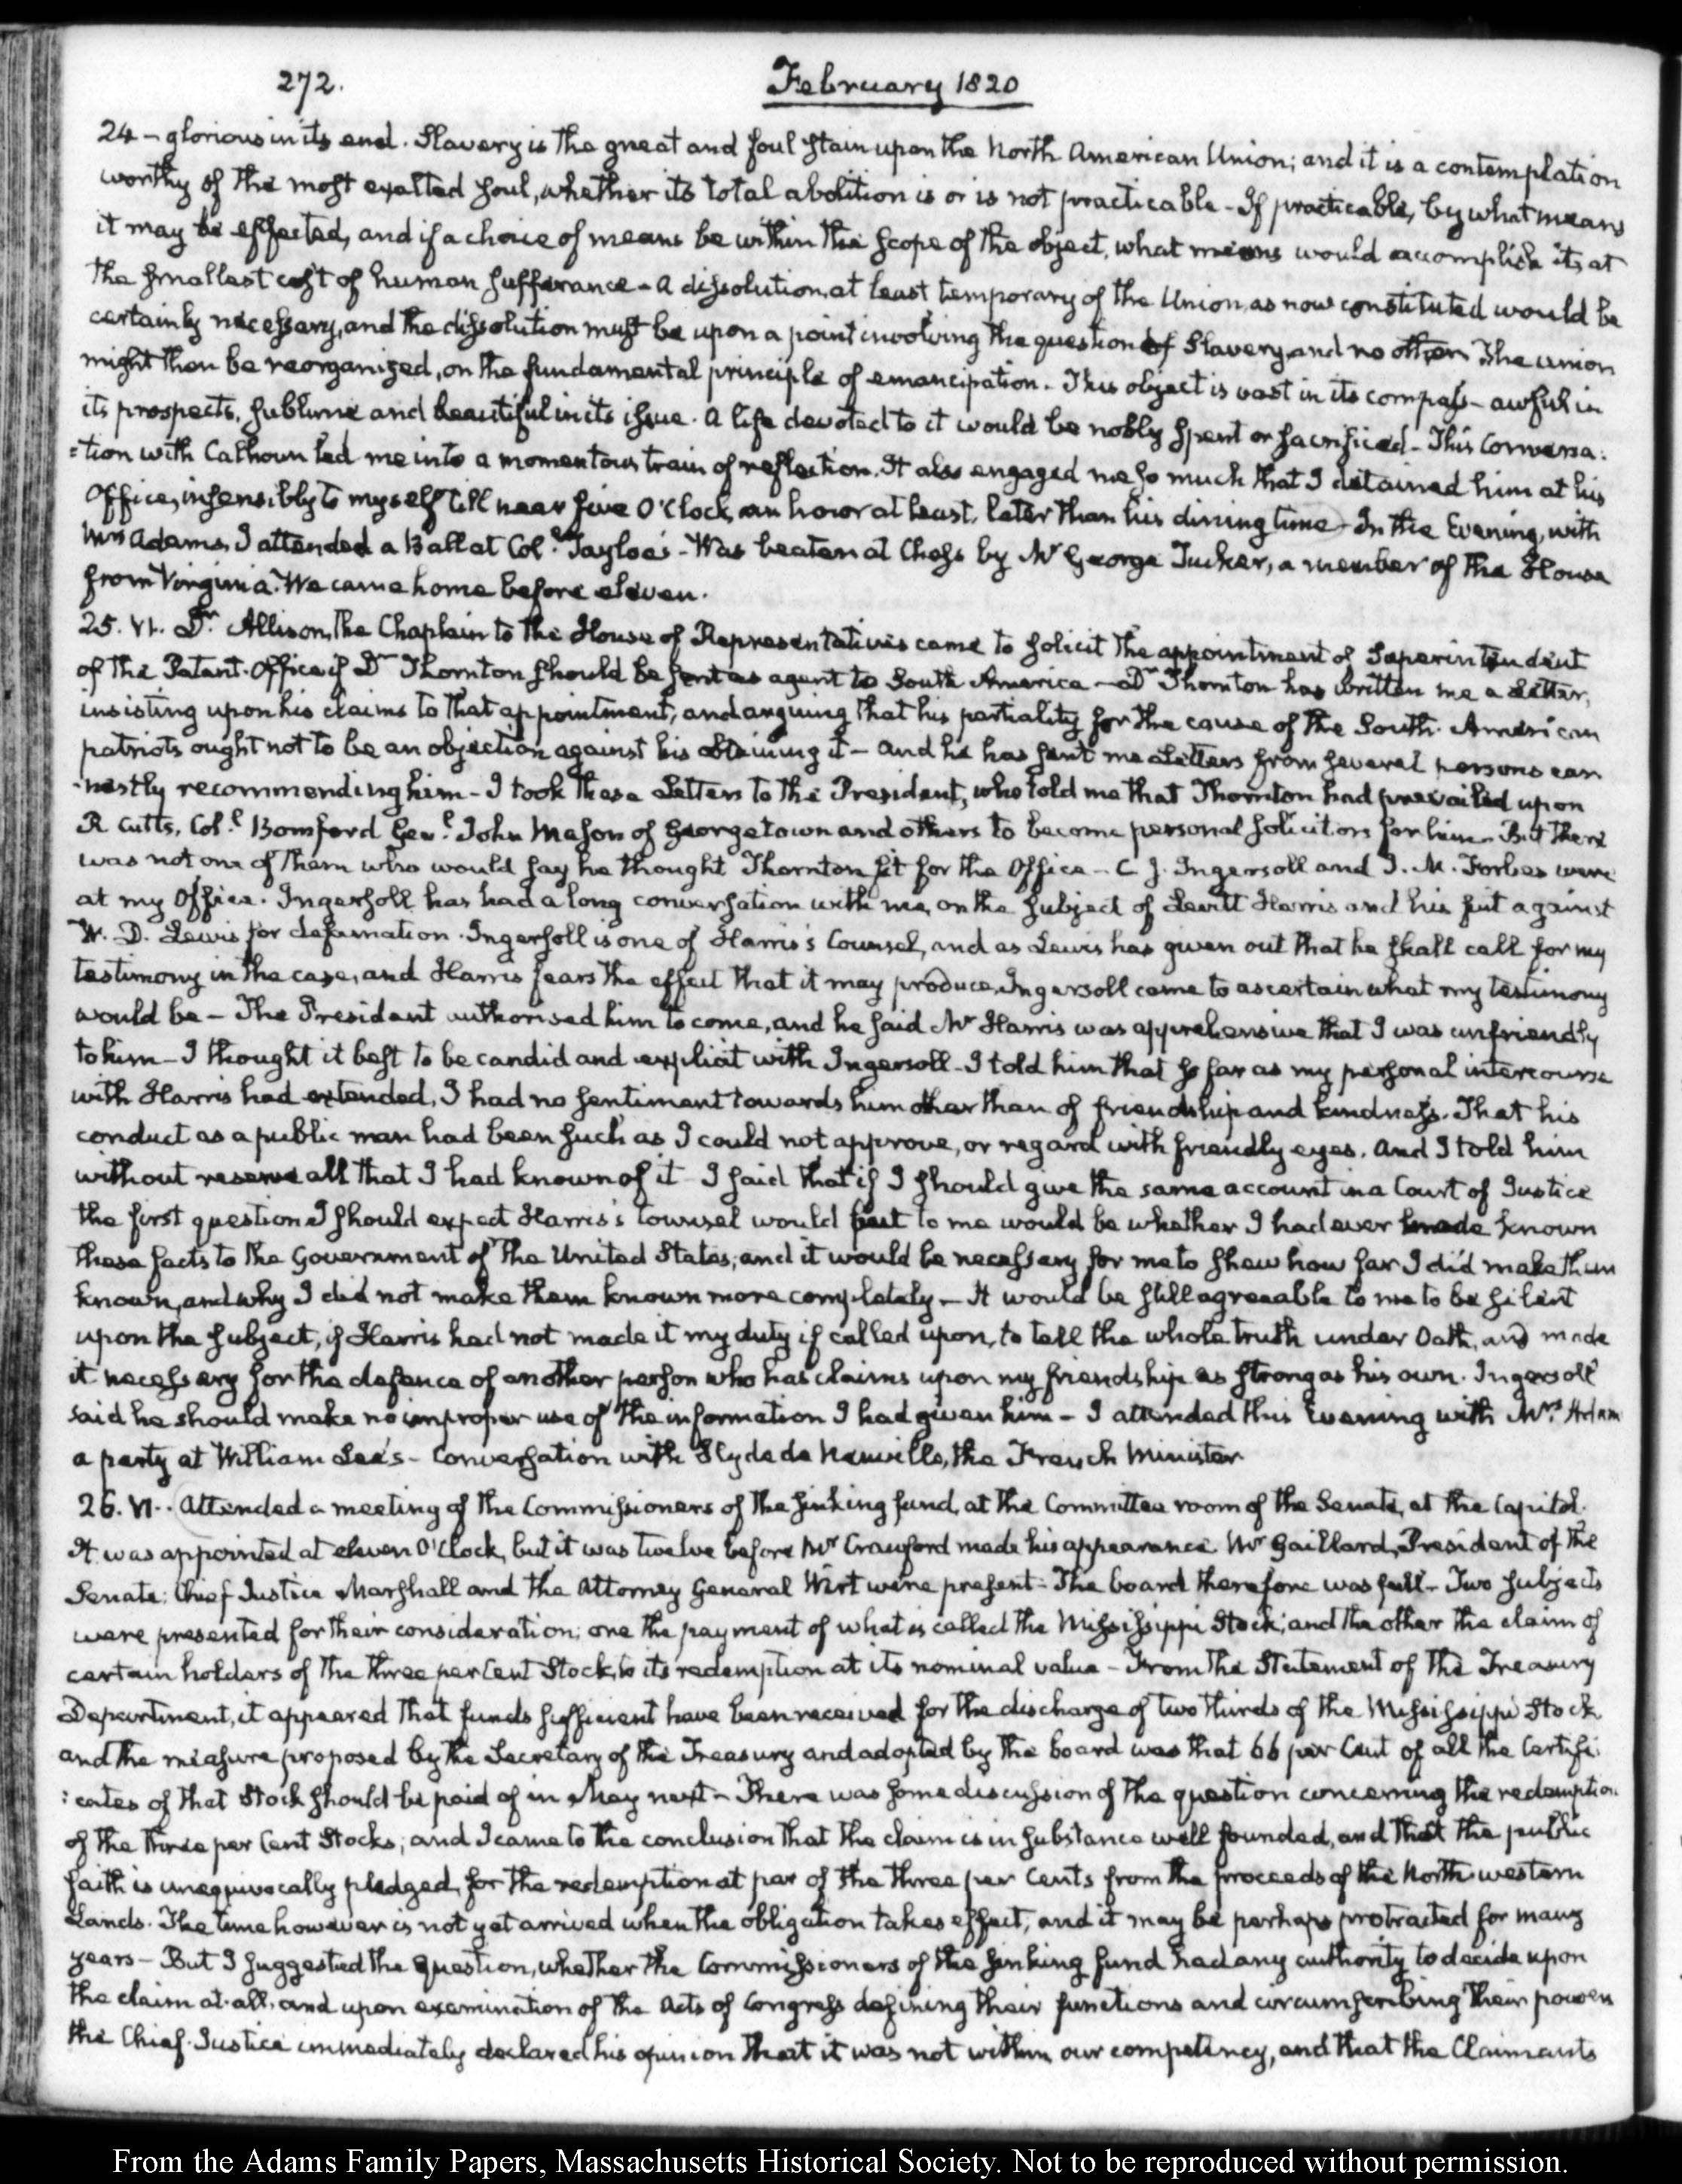 272.
February 1820
24 – glorious in its end. Slavery is the great and foul stain upon the North American Union; and it is a contemplation
worthy of the most exalted soul, whether its total abolition is or is not practicable – If practicable, by what means
it may be effected, and if a choice of means be within the scope of the object, what means would accomplish it, at
the smallest cost of human sufferance – A dissolution, at least temporary of the Union, as now constituted would be
certainly necessary, and the dissolution must be upon a point involving the question of Slavery, and no other. The union
might then be reorganized, on the fundamental principle of emancipation. This object is vast in its compass – awful in
its prospects, sublime and beautiful in its issue. A life devoted to it would be nobly spent or sacrificed – This Conversa:
:tion with Calhoun led me into a momentous train of reflection. It also engaged me so much that I detained him at his
Office, insensibly to myself till near five O'Clock, an hour at least, later than his dining time – In the Evening, with
Mrs Adams, I attended a Ball at Col.l Tayloe's – Was beaten at Chess by Mr George Tucker, a member of the House
from Virginia. We came home before eleven.
25. VI. Dr. Allison, the Chaplain to the House of Representatives came to solicit the appointment of Superintendent
of the Patent-Office, if Dr Thornton should be sent as agent to South America – Dr Thornton has written me a Letter,
insisting upon his claims to that appointment; and arguing that his partiality for the cause of the South-American
patriots ought not to be an objection against his obtaining it – and he has sent me Letters from several persons ear
-nestly recommending him – I took these Letters to the President, who told me that Thornton had prevailed upon
R Cutts, Col.l Bomford Gen.l John Mason of Georgetown and others to become personal solicitors for him – But there
was not one of them who would say he thought Thornton fit for the Office – C. J. Ingersoll and J. M. Forbes were
at my Office. Ingersoll has had a long conversation with me, on the subject of Levett Harris and his suit against
W. D. Lewis for defamation. Ingersoll is one of Harris's Counsel, and as Lewis has given out that he shall call for my
testimony in the case, and Harris fears the effect that it may produce, Ingersoll came to ascertain what my testimony
would be – The President authorised him to come, and he said Mr Harris was apprehensive that I was unfriendly
to him – I thought it best to be candid and explicit with Ingersoll – I told him that so far as my personal intercourse
with Harris had extended, I had no sentiment towards him other than of friendship and kindness. That his
conduct as a public man had been such as I could not approve, or regard with friendly eyes. And I told him
without reserve all that I had known of it – I said that if I should give the same account in a Court of Justice
the first question I should expect Harris's Counsel would put to me would be whether I had ever made known
these facts to the Government of the United States; and it would be necessary for me to shew how far I did make them
known, and why I did not make them known more completely – It would be still agreeable to me to be silent
upon the subject, if Harris had not made it my duty if called upon, to tell the whole truth under Oath, and made
it necessary for the defence of another person who has claims upon my friendship as strong as his own. Ingersoll
said he should make no improper use of the information I had given him – I attended this Evening with Mrs Adam
a party at William Lee's – Conversation with Hyde de Neuville, the French Minister
26. VI.. Attended a meeting of the Commissioners of the sinking fund, at the Committee room of the Senate, at the Capitol.
It was appointed at eleven O'Clock, but it was twelve before Mr Crawford made his appearance. Mr Gaillard, President of the
Senate; Chief Justice Marshall and the Attorney General Wirt were present – The board therefore was full – Two subjects
were presented for their consideration; one the payment of what is called the Mississippi Stock; and the other the claim of
certain holders of the three per Cent Stock, to its redemption at its nominal value – From the Statement of the Treasury
Department, it appeared that funds sufficient have been received for the discharge of two thirds of the Mississippi Stock
and the measure proposed by the Secretary of the Treasury and adopted by the board was that 66 per Cent of all the Certifi:
:cates of that Stock should be paid of in May next – There was some discussion of the question concerning the redemption
of the three per Cent Stocks; and I came to the conclusion that the claim is in substance well founded, and that the public
faith is unequivocally pledged, for the redemption at par of the three per Cents from the proceeds of the North-western
Lands. The time however is not yet arrived when the obligation takes effect; and it may be perhaps protracted for many
years – But I suggested the question, whether the Commissioners of the sinking fund had any authority to decide upon
the claim at all, and upon examination of the Acts of Congress defining their functions and circumscribing their powers
the Chief-Justice immediately declared his opinion that it was not within our competency, and that the Claimants
From the Adams Family Papers, Massachusetts Historical Society. Not to be reproduced without permission.